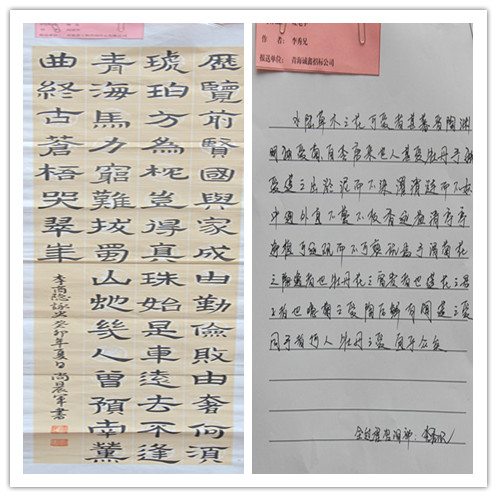 歷覽前賢國與家成由勤儉敗由奢何湏
琥珀方為枕豈得真珠始是車遠去不逢
青海馬力窮難拔蜀山虵幾人曾預南薰
曲終古蒼梧哭翠華
李商隐詠史癸卯年夏日尚晨军書
作者:李秀兄
报送单位:青海诚鑫招标公司
水陆草木之花可爱者甚蕃晋陶渊
明独爱菊自李唐来世人盛爱牡丹予独
爱莲之出淤泥而不染濯清涟而不妖
中通外直不蔓不枝香远益清亭亭
净植可远观而不可亵玩焉予谓菊花
之隐逸者也牡丹花之富贵者也莲花之君
子者也噫菊之爱陶后鲜有闻莲之爱
同予者何人牡丹之爱宜乎众矣
全过程咨询部: